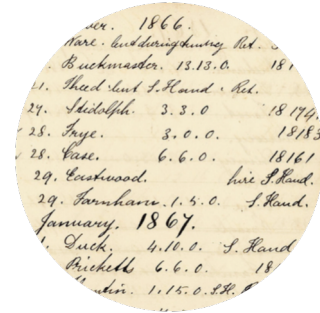 ver. 1866.
Ware. lent during tuning Ret. S
Buckmaster. 13.13.0. 181
21. Theed lent S. Hand. Ret.
27. Stidolph. 3.3.0 18174
28. Frye. 3.0.0. 18183
28. Case. 6.6.0. 18161
29. Eastwood. hire S. Hand.
29. Farnham. 1.5.0. S. Hand.
January. 1867.
1. Duck. 4.10.0. S. Hand
Prickett 6.6.0. 18
1.15.0. S.H.